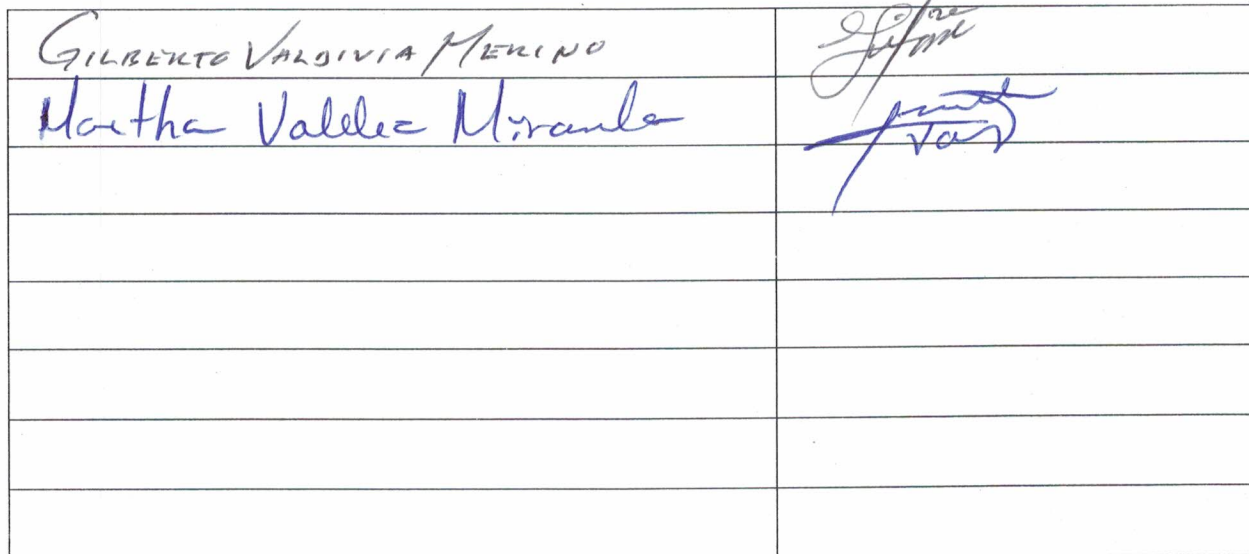 GILBERTO VALDIVIA MERINO
Martha Valdez Miranda